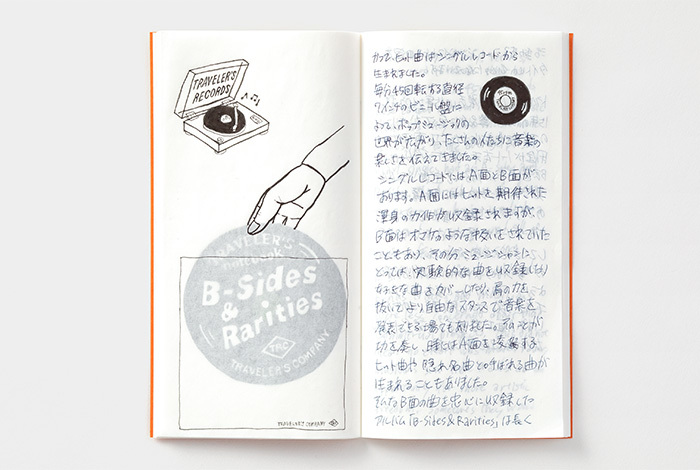 TRAVELER'S
RECORDS
TRAVELER'S
notebook
B-Sides
&
Rarities
TRC
TRAVELER'S COMPANY
TRAVELER'S COMPANY
かつて、ヒット曲はシングルレコードから
生まれました。
毎分45回転する直径
7インチのビニール盤に
よって、ポップミュージックの
世界が広がり、たくさんの人たちに音楽の
楽しさを伝えてきました。
シングルレコードにはA面とB面が
あります。A面にはヒットを期待された
渾身の力作が収録されますが、
B面はオマケのような扱いをされていた
こともあり、その分ミュージシャンに
とっては、実験的な曲を収録したり
好きな曲をカバーしたり、肩の力を
抜いてより自由なスタンスで音楽を
発表できる場でもありました。そのことが
功を奏し、時にはA面を凌駕する
ヒット曲や隠れ名曲と呼ばれる曲が
生まれることもありました。
そんなB面の曲を中心に収録した
アルバム「B-Sides & Rarities」は長く